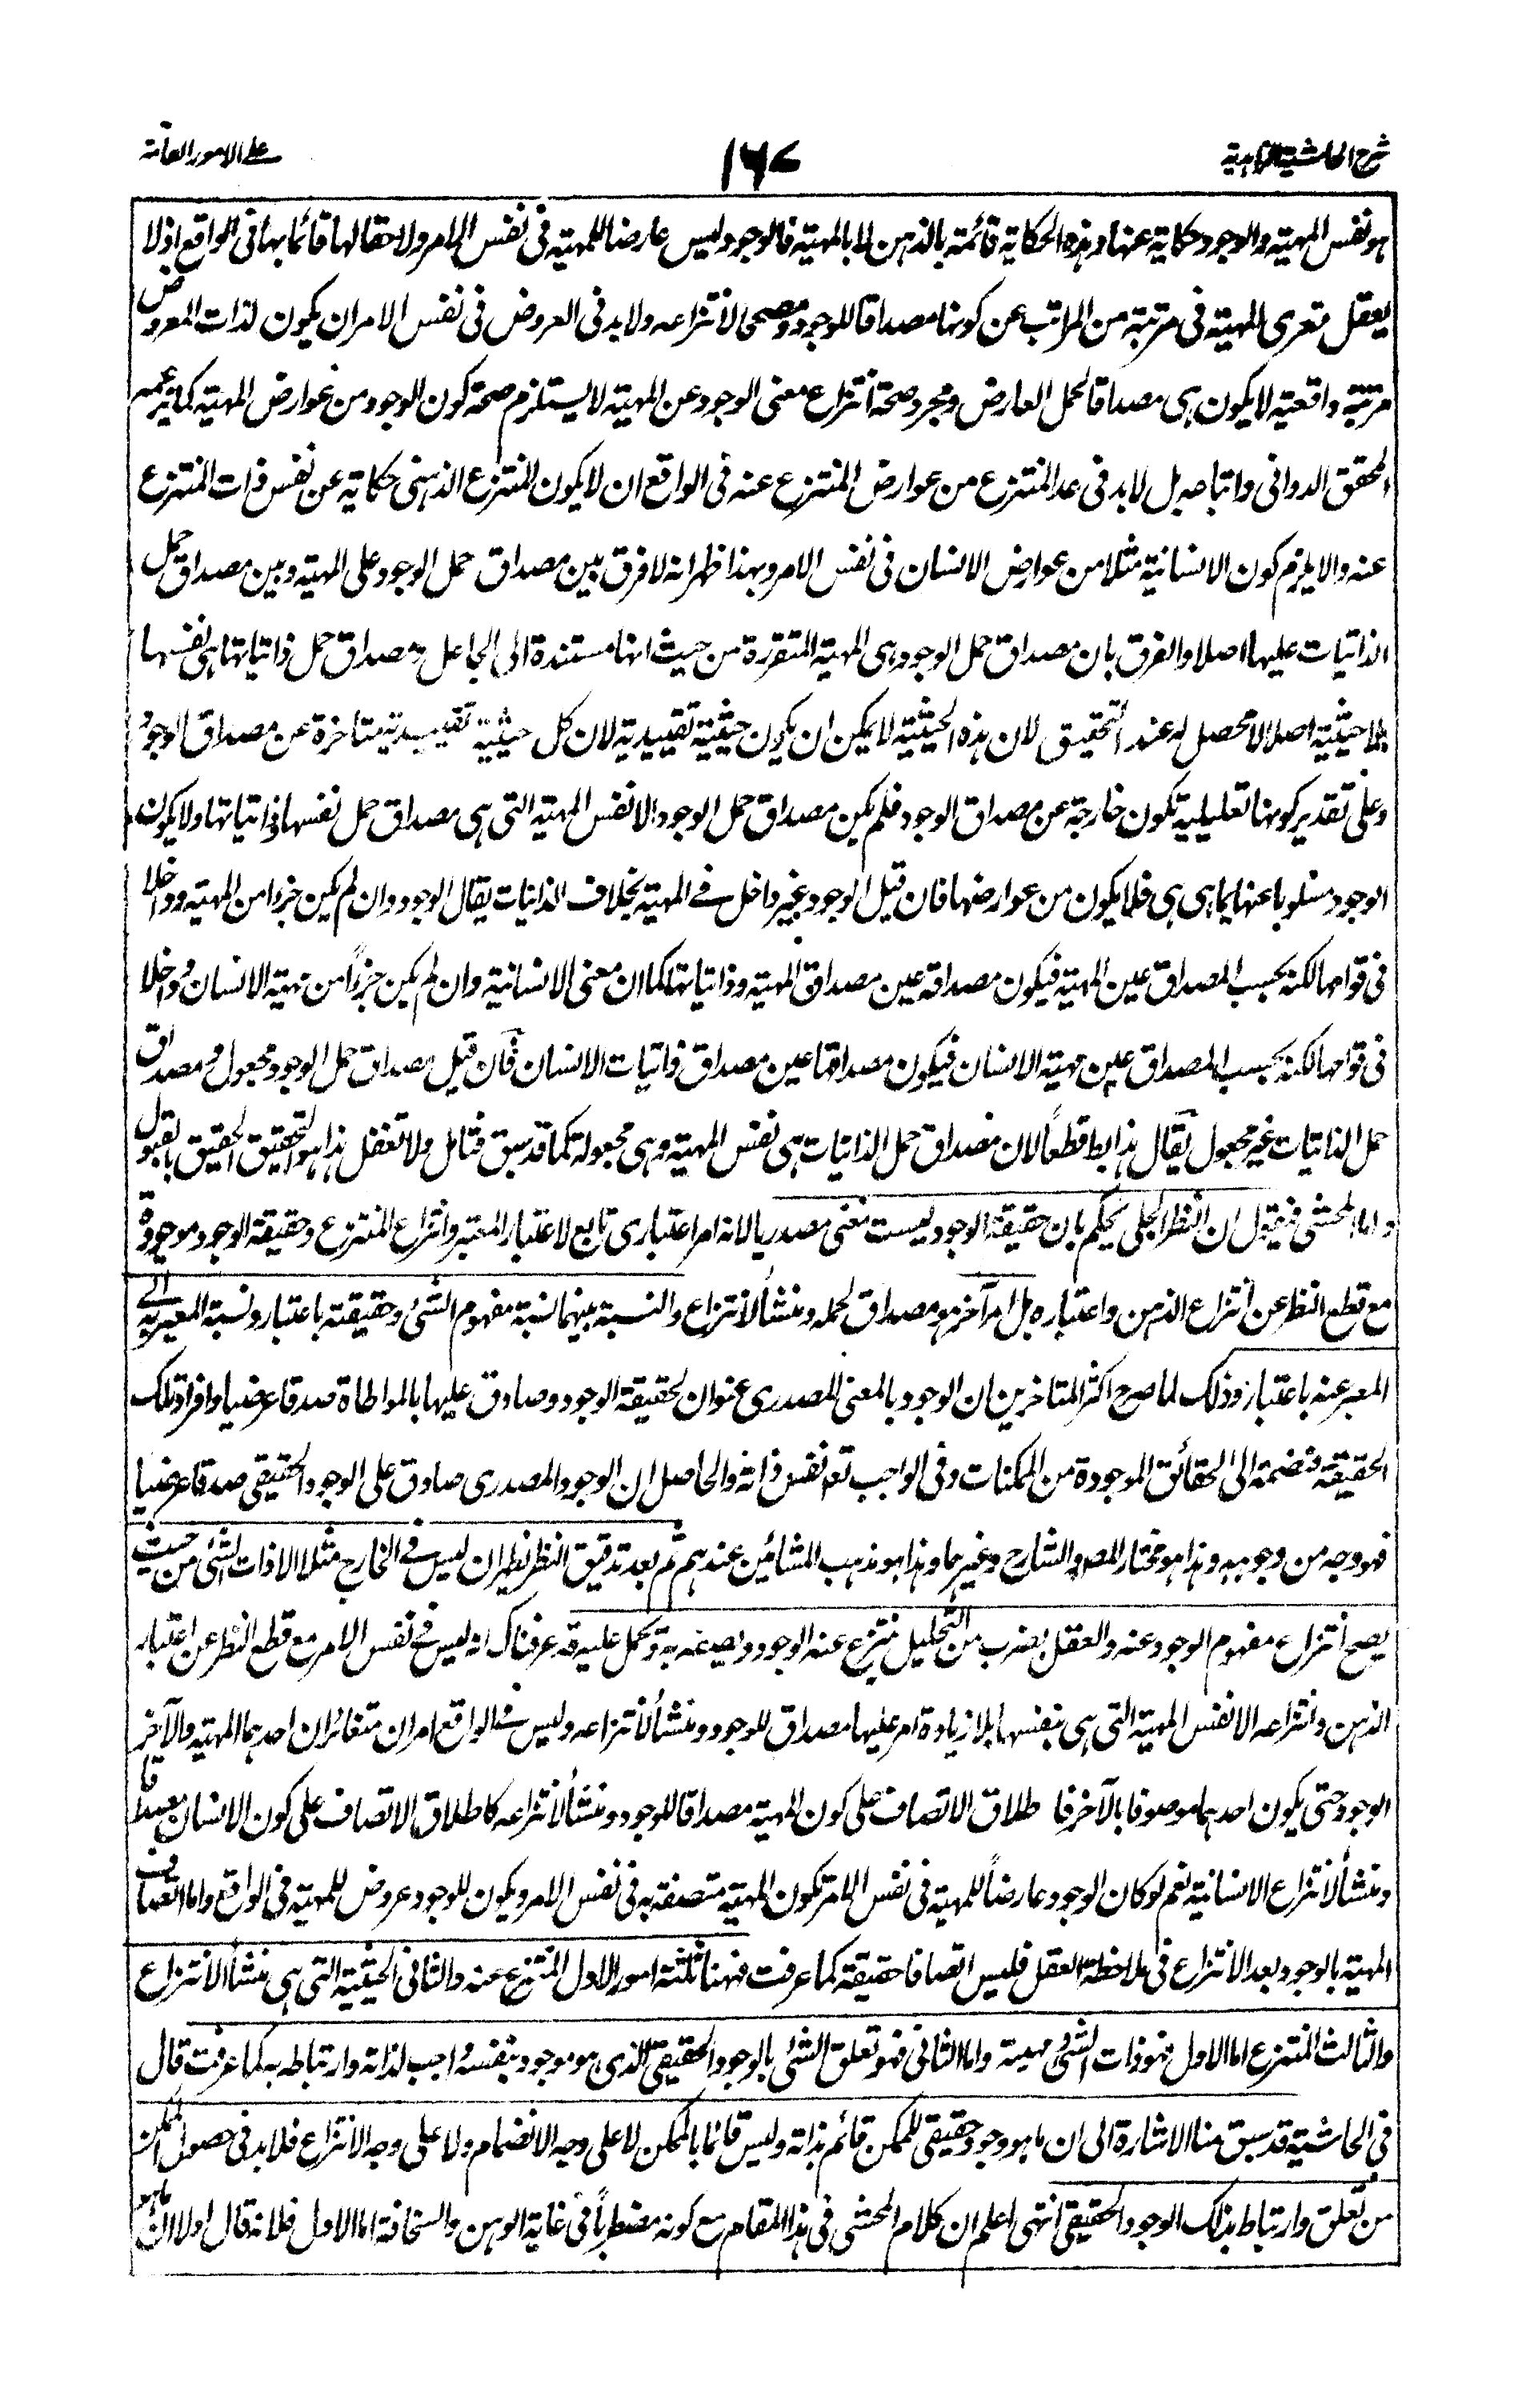 شرح الحاشية الزاهدية
١٦٧
على الامور العامة
هو نفس المهية والوجود حكاية عنها وهذه الحكاية قائمة بالذهن لا بالمهية فالوجود ليس عارضا للمهية فى نفس الامر ولاحقا لها قائما بها فى الواقع اذ لا
يعقل تعرى المهية فى مرتبة من المراتب عن كونها مصداقا للوجود ومصححا لانتزاعه ولابد فى العروض فى نفس الامر ان يكون لذات المعروض
مرتبة واقعية لا يكون هى مصداقا لحمل العارض ومجرد صحة انتزاع معنى الوجود عن المهية لا يستلزم صحة كون الوجود من عوارض المهية كما يزعمه
المحقق الدوانى واتباعه بل لابد فى عد المنتزع من عوارض المنتزع عنه فى الواقع ان لا يكون المنتزع الذهنى حكاية عن نفس ذات المنتزع
عنه والا يلزم كون الانسانية مثلا من عوارض الانسان فى نفس الامر وبهذا ظهر انه لا فرق بين مصداق حمل الوجود على المهية وبين مصداق حمل
الذاتيات عليها اصلا والفرق بان مصداق حمل الوجود هى المهية المتقررة من حيث انها مستندة الى الجاعل ومصداق حمل ذاتياتها هى نفسها
بلا حيثية اصلا لا محصل له عند التحقيق لان هذه الحيثية لا يمكن ان يكون حيثية تقييدية لان كل حيثية تقييدية متاخرة عن مصداق الوجود
وعلى تقدير كونها تعليلية تكون خارجة عن مصداق الوجود فلم يكن مصداق حمل الوجود الا نفس المهية التى هى مصداق حمل نفسها ذاتياتها ولا يكون
الوجود مسلوبا عنها بما هى هى فلا يكون من عوارضها فان قيل الوجود غير داخل فى المهية بخلاف الذاتيات يقال الوجود وان لم يكن جزءا من المهية وداخلا
فى قوامها لكنه بحسب المصداق عين المهية فيكون مصداقه عين مصداق المهية وذاتياتها كما ان معنى الانسانية وان لم يكن جزءًا من مهية الانسان وداخلا
فى قوامها لكنه بحسب المصداق عين مهية الانسان فيكون مصداقها عين مصداق ذاتيات الانسان فان قيل مصداق حمل الوجود مجعول ومصداق
حمل الذاتيات غير مجعول يقال هذا بط قطعًا لان مصداق حمل الذاتيات هى نفس المهية وهى مجعولة كما قد سبق فتامل ولا تغفل هذا هو التحقيق الحقيق بالقبول
واما المحشى فيقول ان النظر الجلى يحكم بان حقيقة الوجود ليست معنى مصدريا لانه امر اعتبارى تابع لاعتبار المعتبر وانتزاع المنتزع وحقيقة الوجود موجودة
مع قطع النظر عن انتزاع الذهن واعتباره بل امر آخر هو مصداق لحمله ومنشأ لانتزاع والنسبة بينهما نسبة مفهوم الشئ وحقيقته باعتبار ونسبة المعبر به الى
المعبر عنه باعتبار وذلك لما صرح اكثر المتاخرين ان الوجود بالمعنى المصدرى عنوان لحقيقة الوجود وصادق عليها بالمواطاة صدقا عرضيا وافراد تلك
الحقيقة منضمة الى الحقائق الموجودة من الممكنات وفى الواجب تع نفس ذاته والحاصل ان الوجود المصدرى صادق على الوجود الحقيقى صدقا عرضيا
فهو وجه من وجوهه وهذا هو مختار المصـ والشارح وغيرهما وهذا هو مذهب المشائين عندهم ثم بعد تدقيق النظر يظهر ان ليس فى الخارج مثلا الا ذات الشئ من حيث
يصح انتزاع مفهوم الوجود عنه والعقل بضرب من التحليل ينتزع عنه الوجود ويصفه به ويحمل عليه قد عرفناك انه ليس فى نفس الامر مع قطع النظر عن اعتبار
الذهن وانتزاعه الا نفس المهية التى هى بنفسها بلا زيادة امر عليها مصداق للوجود ومنشأ لانتزاعه وليس فى الواقع امران متغائران احدهما المهية والآخر
الوجود حتى يكون احدهما موصوفا بالآخر فا طلاق الاتصاف على كون المهية مصداقا للوجود ومنشأ لانتزاعه كاطلاق الاتصاف على كون الانسان مصداقا
ومنشأ لانتزاع الانسانية نعم لو كان الوجود عارضاً للمهية فى نفس الامر تكون المهية متصفة به فى نفس الامر ويكون للوجود عروض للمهية فى الواقع واما اتصاف
المهية بالوجود بعد الانتزاع فى ملاحظة العقل فليس اتصافا حقيقة كما عرفت فههنا ثلثة امور الاول المنتزع عنه والثانى الحيثية التى هى منشأ الانتزاع
والثالث المنتزع اما الاول فهو ذات الشئ ومهية واما الثانى فهو تعلق الشئ بالوجود الحقيقى الذى هو موجود بنفسه واجب لذاته وارتباطه به كما عرفت قال
فى الحاشية قد سبق منا الاشارة الى ان ما هو وجود حقيقى للممكن قائم بذاته وليس قائما بالممكن لا على وجه الانضمام ولا على وجه الانتزاع فلابد فى حصول الممكن
من تعلق وارتباط بذلك الوجود الحقيقى انتهى اعلم ان كلام المحشى فى هذا المقام مع كونه مضطرباً فى غاية الوهن والسخافة اما الاول فلانه قال اولا ان ما هو